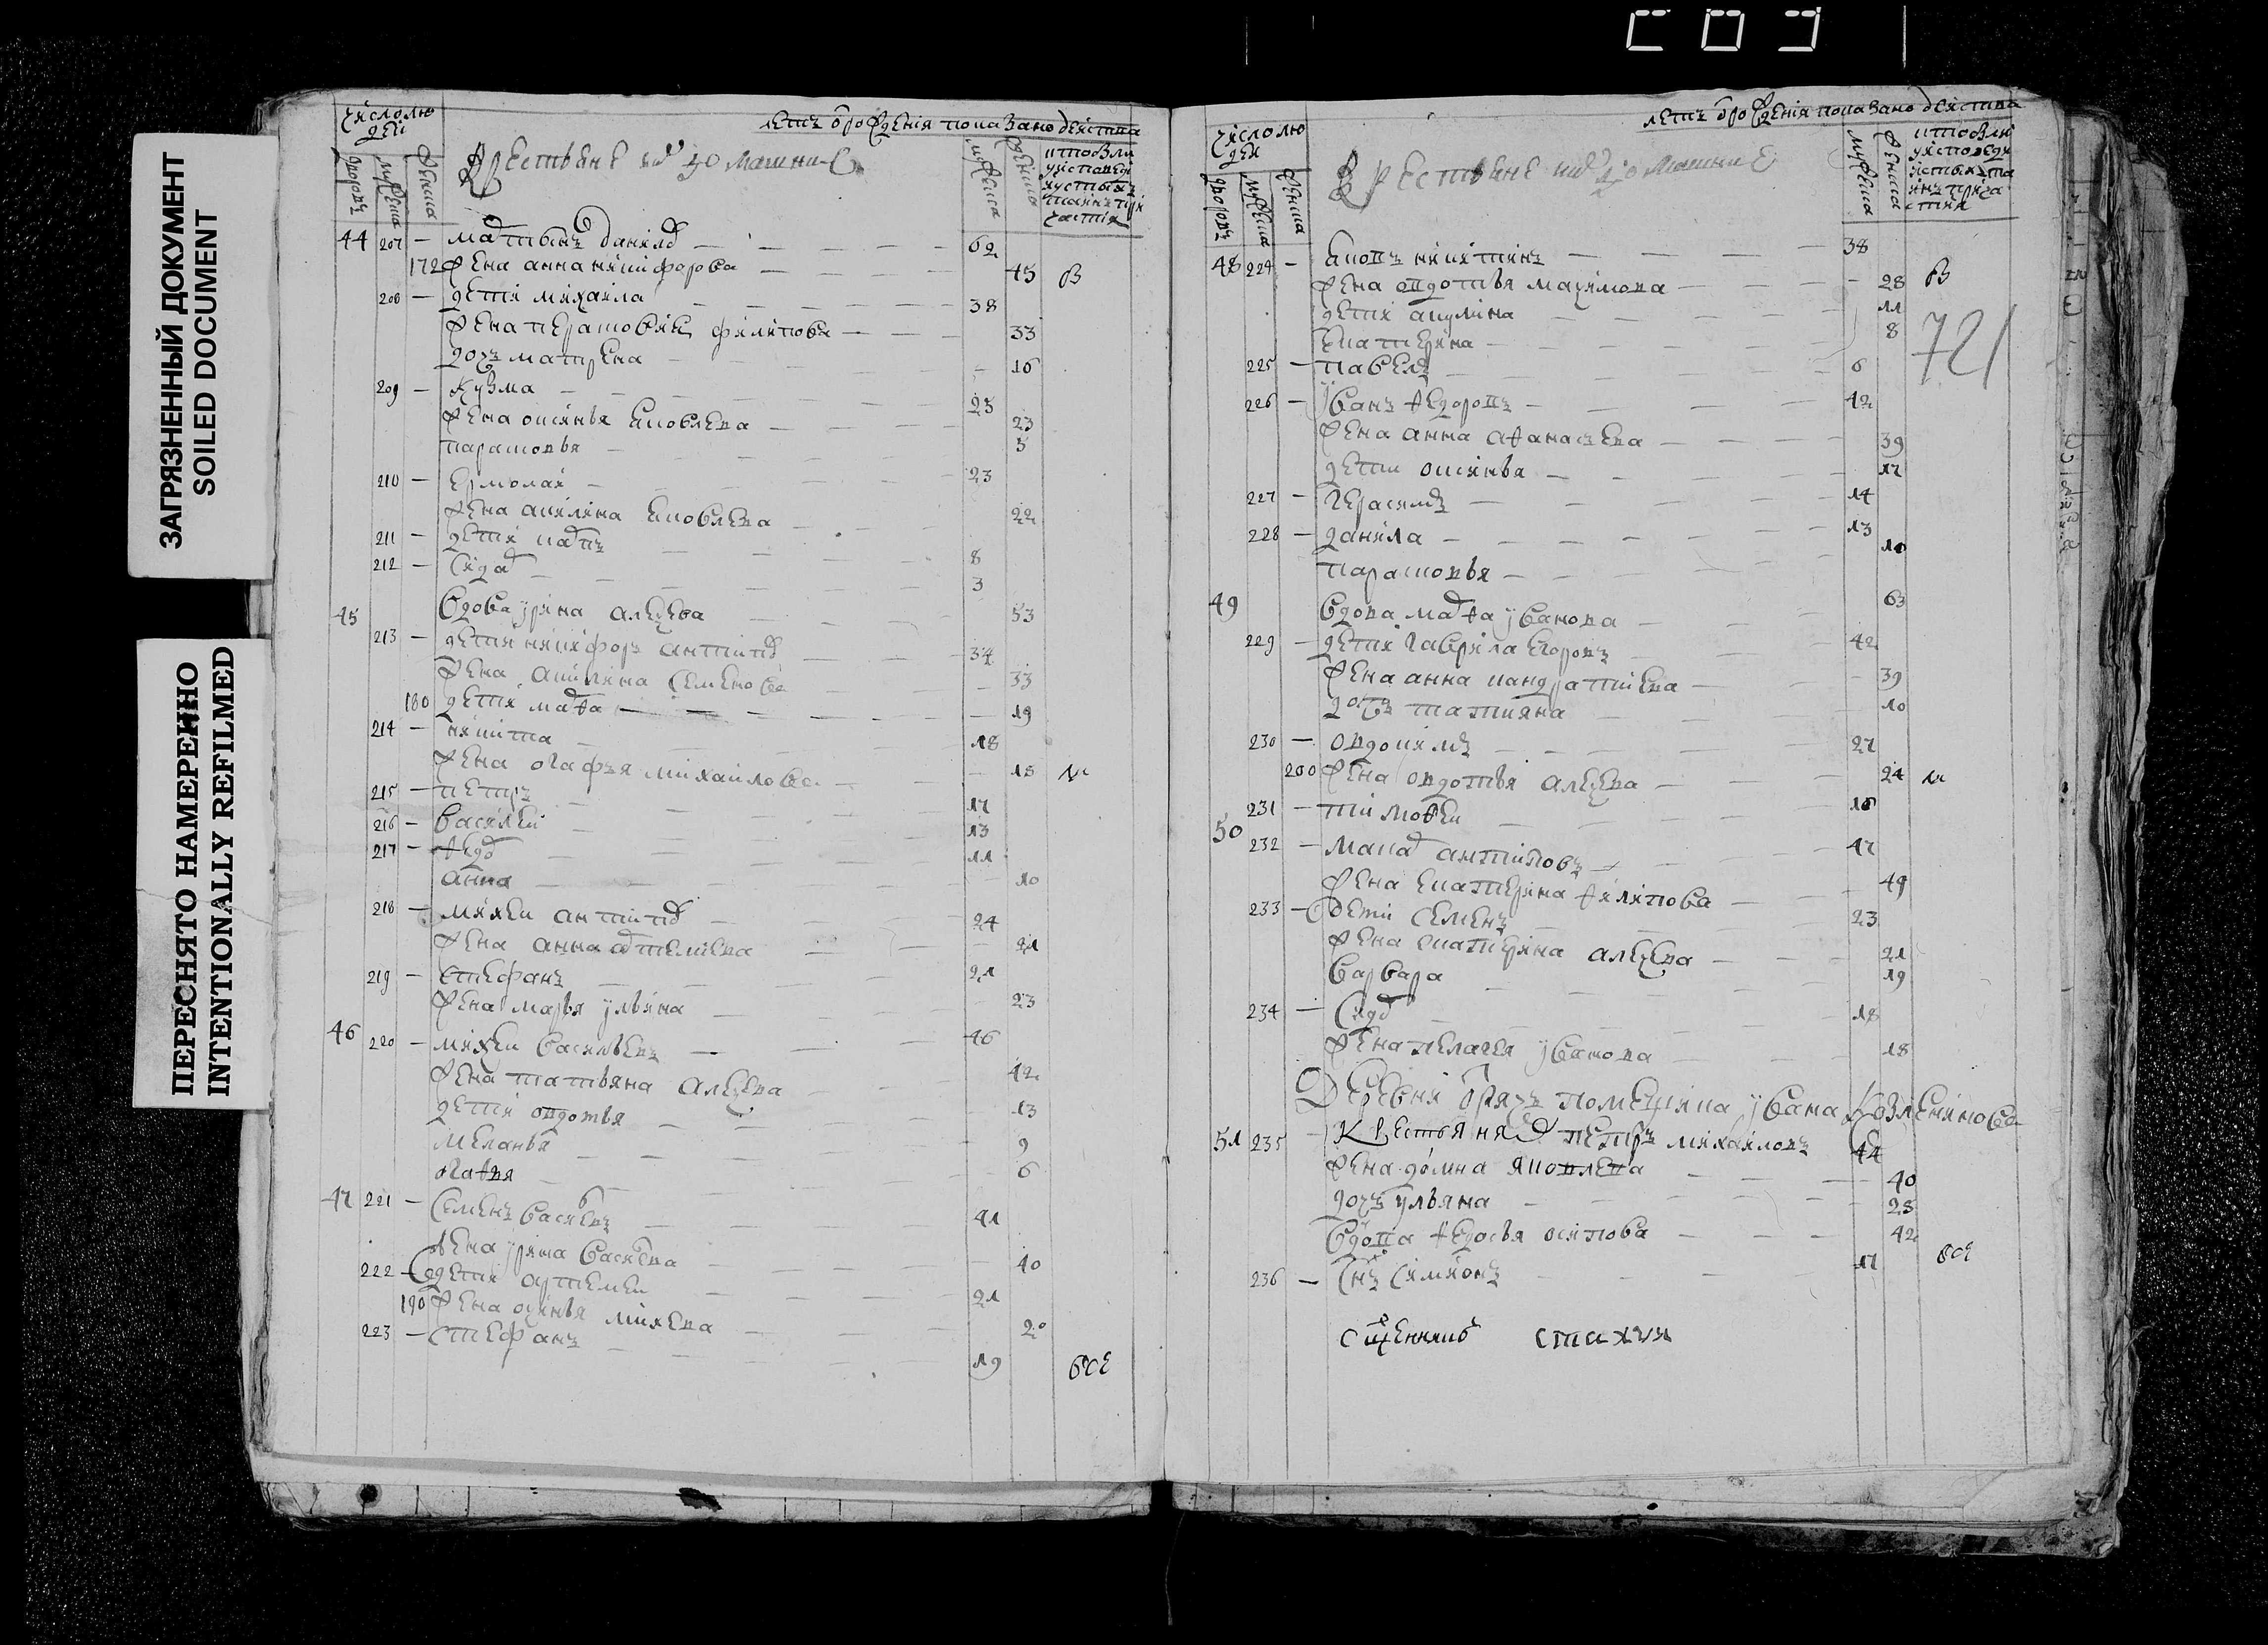 ЗАГРЯЗНЕННЫЙ ДОКУМЕНТ
SOILED DOCUMENT
ПЕРЕСНЯТО НАМЕРЕННО
INTENTIONALLY REFILMED
число лю
дей
дворовъ
мужеска
женска
летъ от рождения показано действи
мужеска
женска
Крестьяне и домашние
44 207 — мартынъ данилов 62
172 жена анна никифорова 45 в
208 — дети михаила 38
жена парасковия филипова 33
дочь матрена 16
209 — кузма 25
жена оксинья яковлева 23
парасковья 5
210 — ермолай 23
жена акилина яковлева 22
211 — дети карпъ 8
212 — сидор 3
45 вдова ирина алексева 53
213 — дети никифор антипов 34
жена акилина семенова 33
180 дети марфа 19
214 — никита 18
жена огафья михаилова 18
215 — петръ 17
216 — василеи 13
217 — федор 11
анна 10
218 — михеи антипов 24
жена анна артемиева 21
219 — степанъ 21
жена марья ульина 23
46 220 — михеи васильевъ 46
жена татьяна алексева 42
дети овдотья 13
меланья 9
огафья 6
47 221 — семенъ василевъ 41
жена ирина василева 40
222 — дети артемеи 21
190 жена оксинья михева 20
223 — стефанъ 19 все
число лю
дей
дворовъ
мужеска
женска
летъ от рождения показано действа
мужеска
женска
Крестьяне и домашние
48 224 — яковъ никитинъ 38
жена овдотья максимова 28 в
дети акулина 11
катерина 8
721
225 — павел 6
226 — иванъ федоровъ 42
жена анна афанасьева 39
дети оксинья 17
227 — герасимъ 14
228 — данила 13
парасковья 10
49 вдова марфа иванова 63
229 — дети гаврила егоровъ 42
жена анна кандратиева 39
дочь татияна 10
230 — овдокимъ 27
200 жена овдотья алексева 24
231 — тимофеи 18
50 232 — макар антиповъ 47
жена катерина филипова 49
233 — дети семенъ 23
жена катерина алексева 21
варвара 19
234 — сидор 18
жена пелагея иванова 18
Деревни помещика ивана
51 235 крестьянин петръ михаиловъ 44
жена домна яковлева 40
дочь ульяна 25
вдова федосья осипова 42
236 — снъ симионъ 17 все
сщенникъ стахии